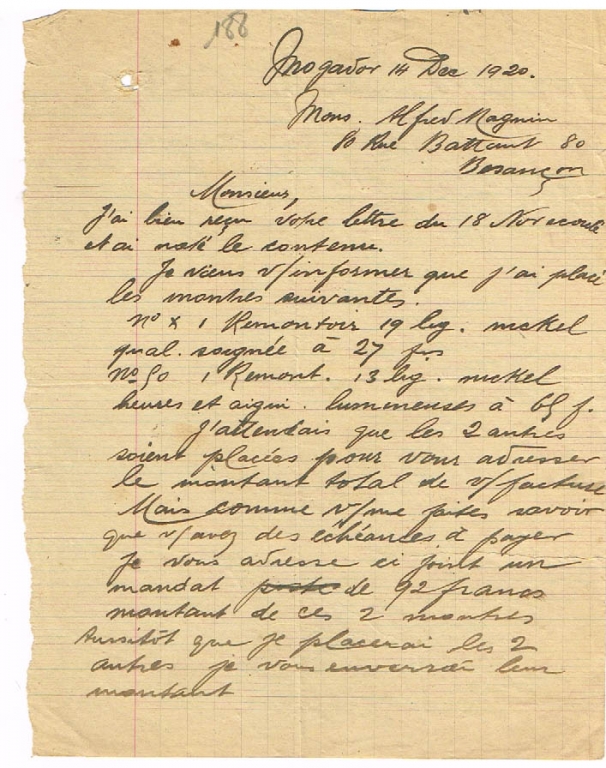 188
Mogador 14 Dec 1920.
Mons. Alfred Magnin
80 Rue Battant 80
Besançon
Monsieur,
J'ai bien reçu votre lettre du 18 Nov ecoulé
et ai noté le contenu.
Je viens v/informer que j'ai placé
les montres suivantes.
n° X 1 Remontoir 19 lig. nickel
qual. soignée à 27 frs
n° 50 1 Remont. 13 lig. nickel
heures et aigui. lumineuses à 65 f.
J'attendais que les 2 autres
soient placées pour vous adresser
le montant total de v/facture
Mais comme v/me faites savoir
que v/avez des échéances à payer
Je vous adresse ci joint un
mandat de 92 francs
montant de ces 2 montres
Aussitôt que je placerai les 2
autres je vous enverrai leur
montant